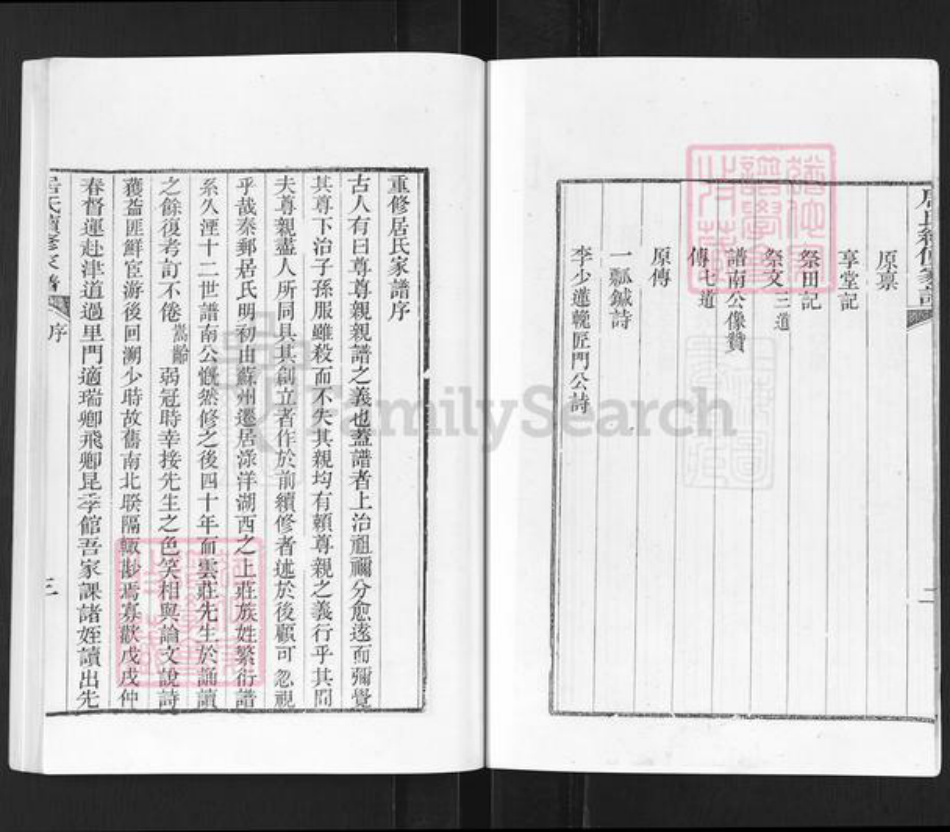 居氏續修家譜
二
原稟
享堂記
祭田記
祭文三道
譜南公像贊
傳七道
原傳
一瓢鍼詩
李少蓮輓匠門公詩
重修居氏家譜序
古人有曰尊尊親親譜之義也蓋譜者上治祖禰分愈遠而彌覺
其尊下治子孫服雖殺而不失其親均有賴尊親之義行乎其間
夫尊親蓋人所同具其創立者作於前續修者述於後顧可忽視
乎哉秦郵居氏明初由蘇州遷居淥洋湖西之上莊族姓繁衍譜
系久湮十二世譜南公慨然修之後四十年而雲莊先生於誦讀
之餘復考訂不倦嵩齡弱冠時幸接先生之色笑相與論文說詩
獲益匪鮮宦游後回溯少時故舊南北睽隔輙尠焉寡歡戊戌仲
春督運赴津道過里門適瑞卿飛卿昆季館吾家課諸姪讀出先
居氏續修家譜
序
三
FamilySearch